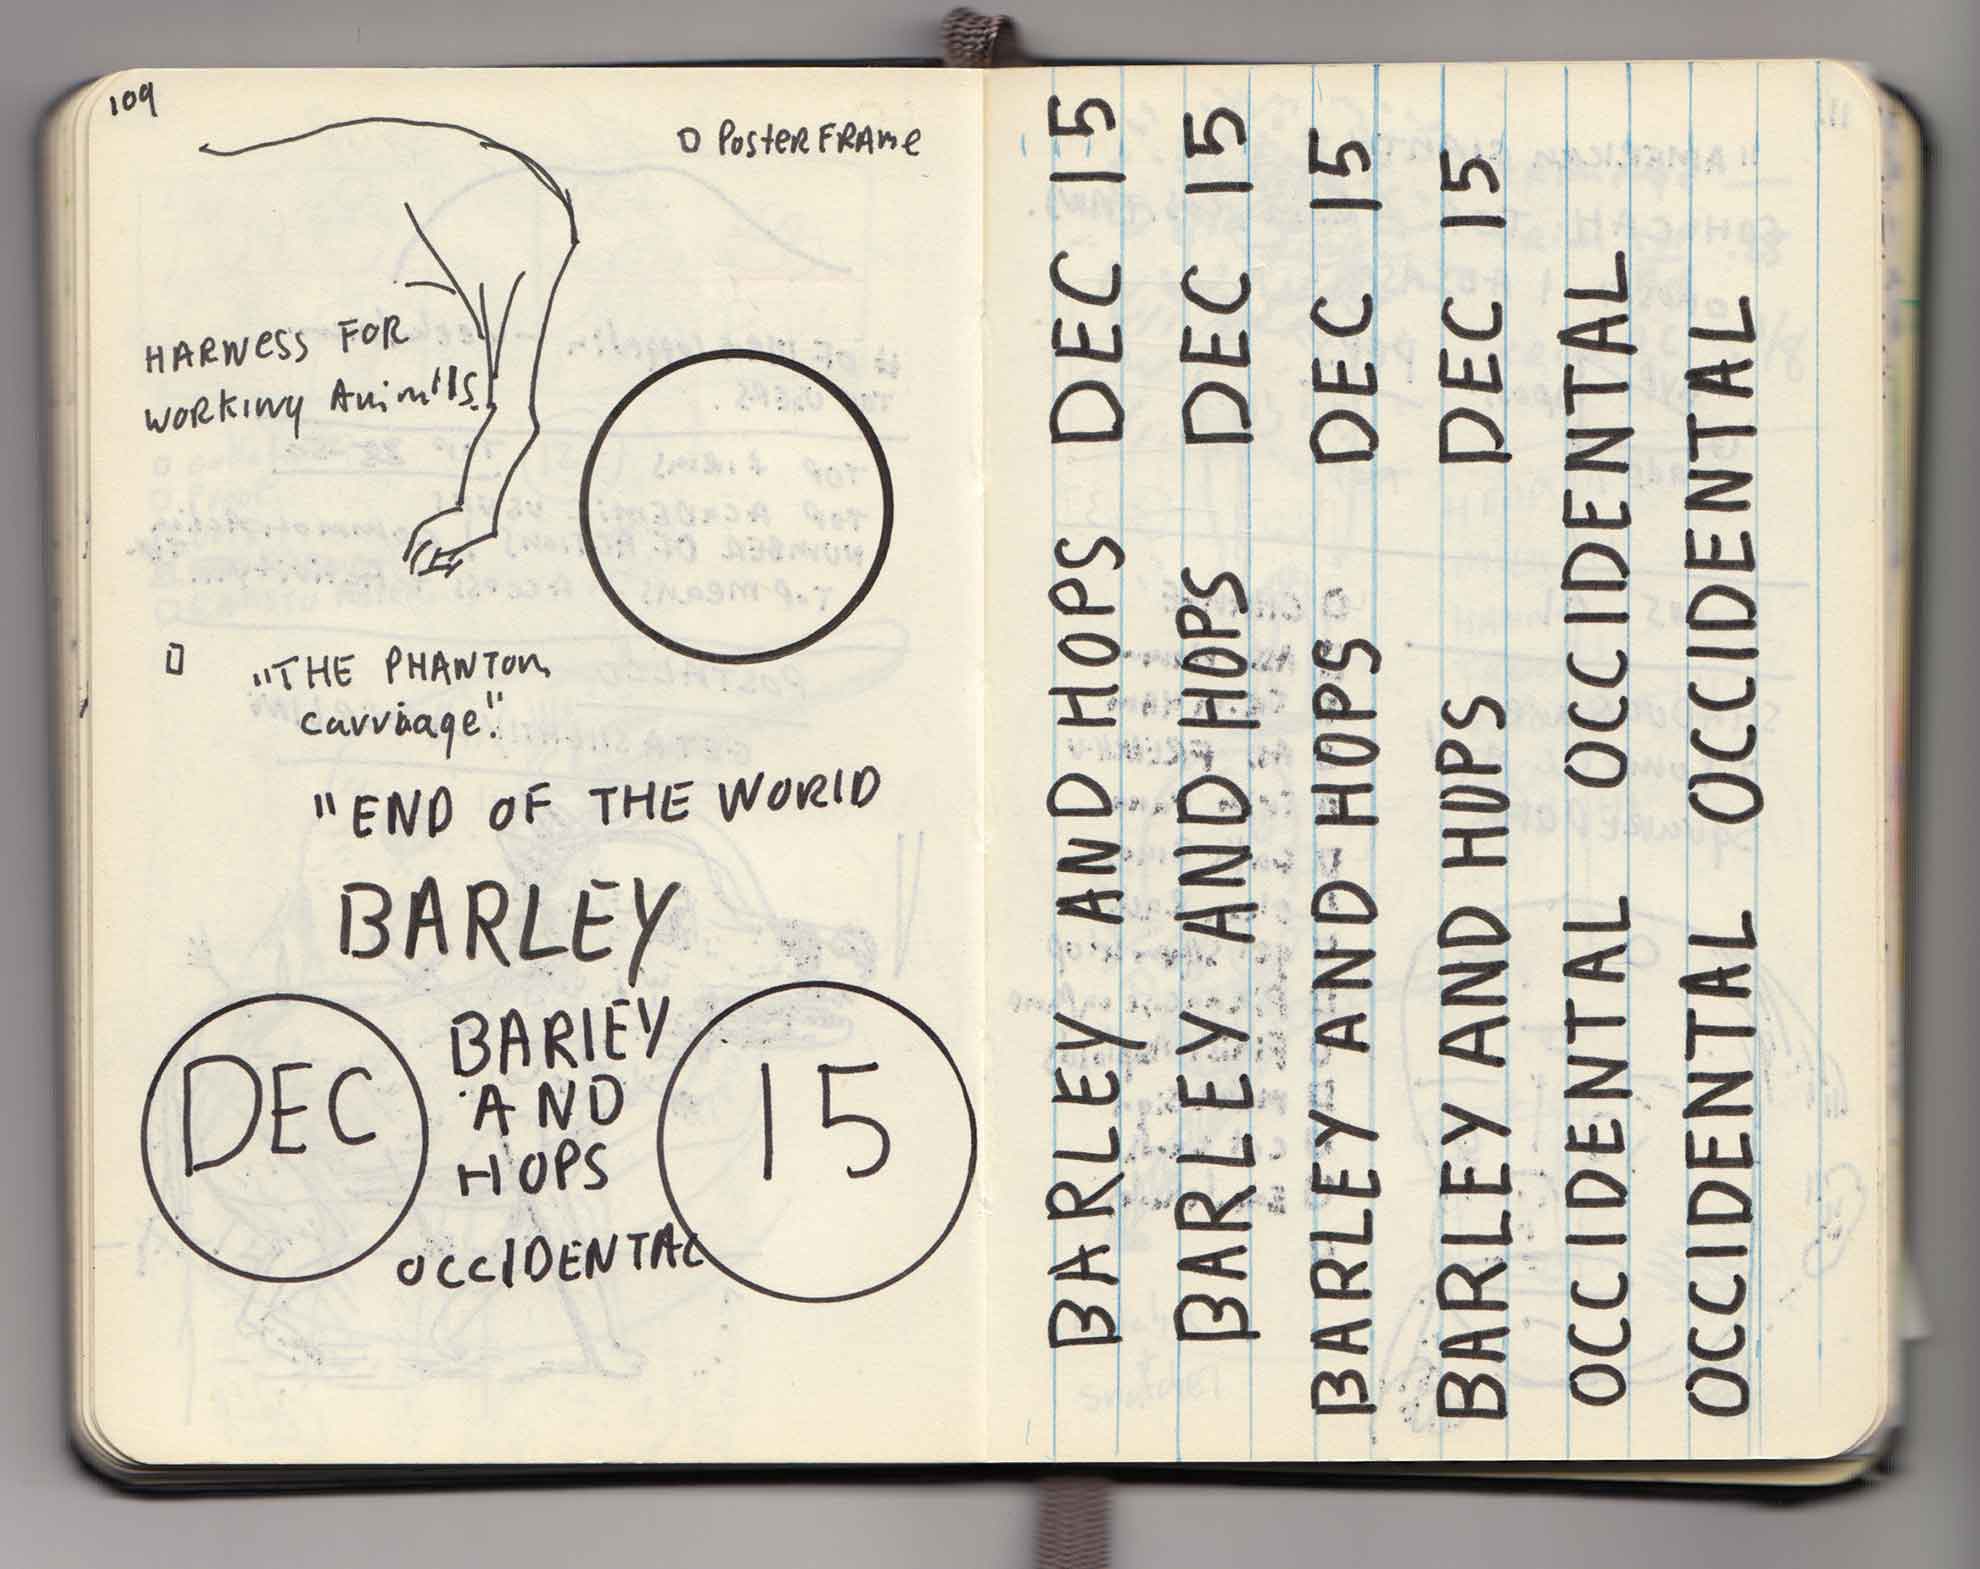 109
Poster FRAMe
HARNeSS FOR
WORKING Anim'lls.
"THE PHANTOM
Carriage".
"END OF THE WORlD
BARLEY
BARlEY
AND
HOPS
DEC
15
OCCIDENTAL
BARLEY AND HOPS DEC 15
BARLEY AND HOPS DEC 15
BARLEY AND HOPS DEC 15
BARLEY AND HOPS DEC 15
OCCIDENTAL OCCIDENTAL
OCCIDENTAL OCCIDENTAL